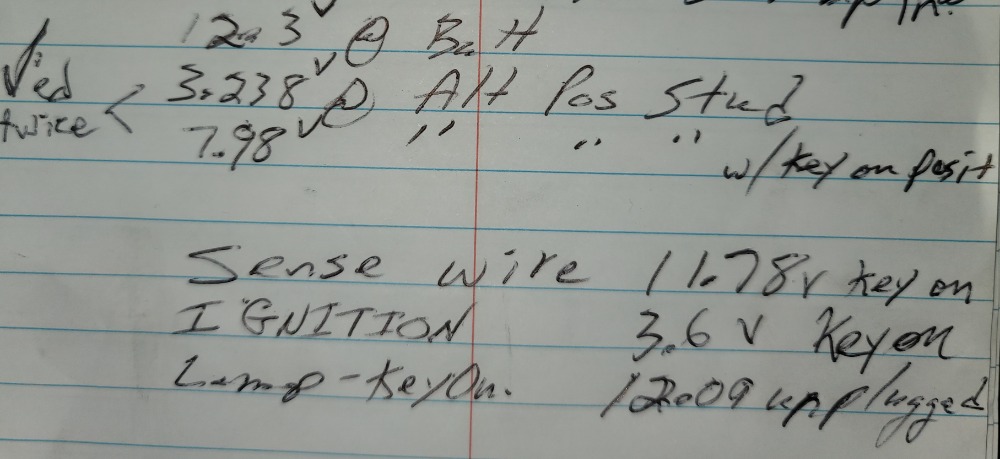 12.3 v @ Batt
3.238 v @ Alt Pos Stud
twice < 7.98 v " " "
w/ key on posit
Sense wire 11.78v key on
IGNITION 3.6 v Key on
Lamp - Key On. 12.09 unplugged